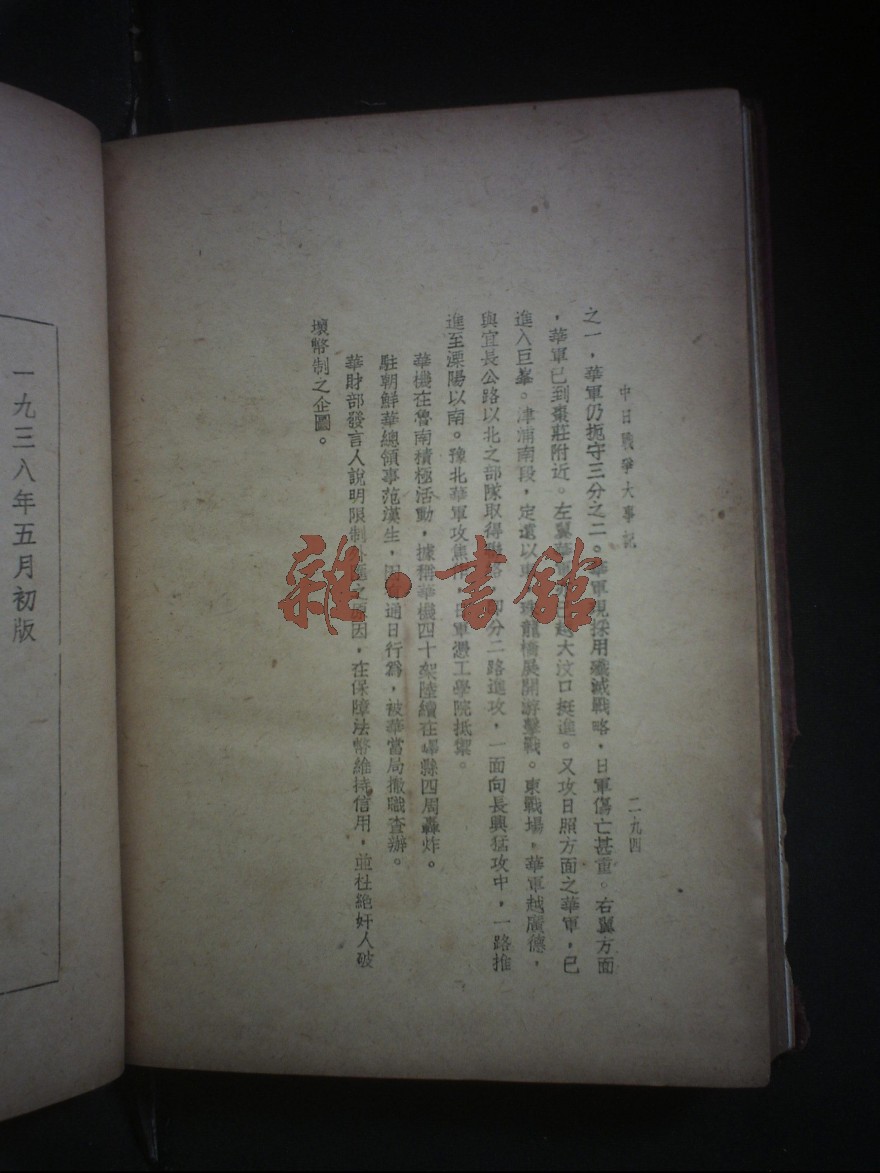 中日戰爭大事記
二九四
之一，華軍仍扼守三分之二。華軍現採用殲滅戰略，日軍傷亡甚重。右翼方面
，華軍已到棗莊附近。左翼華軍已越大汶口挺進。又攻日照方面之華軍，已
進入巨峯。津浦南段，定遠以東珠龍橋展開游擊戰。東戰場，華軍越廣德，
與宜長公路以北之部隊取得聯絡，卽分二路進攻，一面向長興猛攻中，一路推
進至溧陽以南。豫北華軍攻焦作，日軍憑工學院抵禦。
華機在魯南積極活動，據稱華機四十架陸續在嶧縣四周轟炸。
駐朝鮮華總領事范漢生，因通日行爲，被華當局撤職查辦。
華財部發言人說明限制外匯之原因，在保障法幣維持信用，並杜絕奸人破
壞幣制之企圖。
一九三八年五月初版
雜·書館